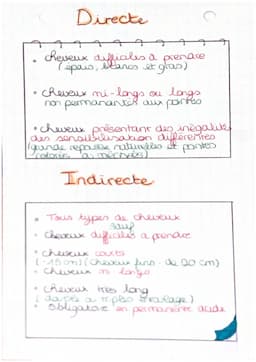 Directe
• cheveux difficiles à prendre
(épais, blancs et gras)
• cheveux mi-longs ou longs
non permanentés aux pointes
• cheveux présentant des inégalités
de sensibilisation différentes
(grande repousse naturelles et pointes
colorées à méchées)
Indirecte
• Tous types de cheveux
sauf
• cheveux difficiles à prendre
• cheveux courts
(-15 cm) (cheveux fins - de 20 cm)
• cheveux mi longs
• cheveux très long
• obligatoire en permanente acide